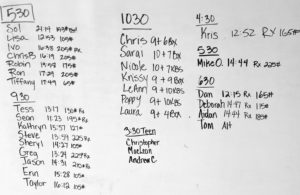 530
Sol 21:14
Lisa 12:53 105#
Ivo 16:38 205# Rx
Chris B 16:19 205#
Robin 17:59 175#
Ron 17:29 205#
Tiffany 17:49 65#
930
Tess 13:17 Rx
Sean 11:23 195# Rx
Kathryn 15:57 127#
Steve 13:59 225# Rx
Sheryl 14:27 105#
Greg 13:29 225# Rx
Jason 14:31 210#
Erin 15:28 105#
Taylor 16:12 105#
1030
Chris 9+6BX
Sarai 10+7BX
Nicole 10+7KBS
Krissy 9+9BX
LeAnn 9+10KBS
Poppy 9+10KBS
Laura 9+4BX
3:30 Teen
Christopher
Madison
Andrew C.
4:30
Kris 12:52 RX 165#
530
Mike O. 14:44 Rx 225#
630
Dan 12:15 Rx 165#
Deborah 14:47 Rx 115#
Aidan 14:44 Rx 185#
Tom Alt